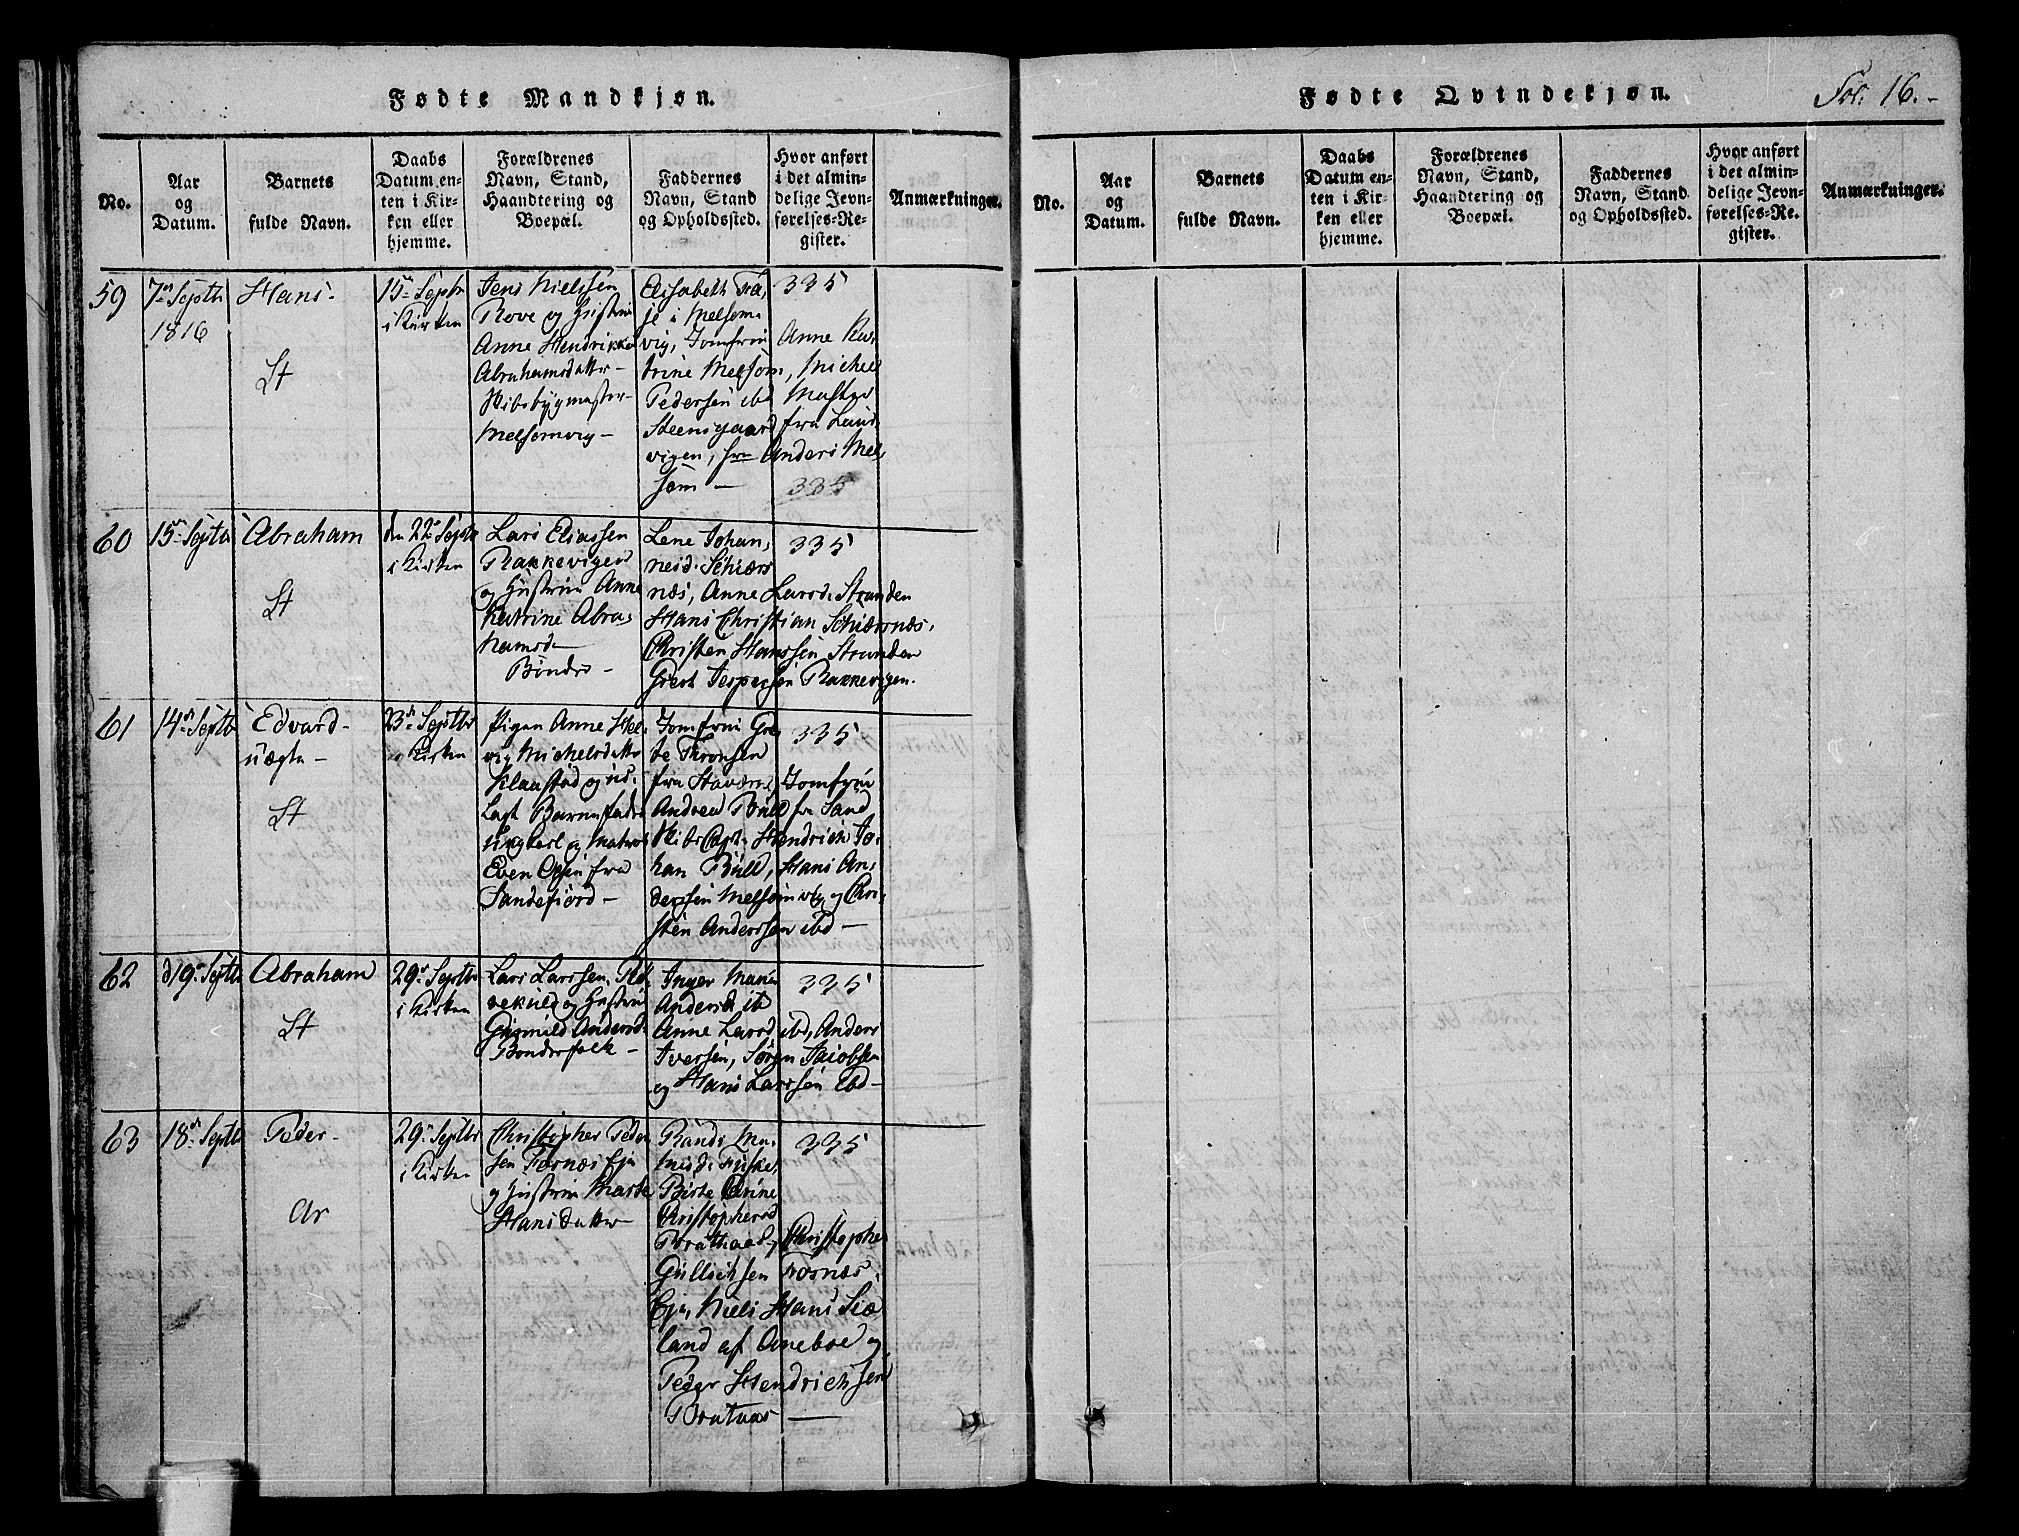 Fødte Mandkjøn.
No.
Aar
og
Datum.
Barnets
fulde Navn.
Daabs
Datum en-
ten i Kir-
ken eller
hjemme.
Forældrenes
Navn, Stand,
Haandtering og
Boepæl.
Faddernes
Navn, Stand
og Opholdssted.
Hvor anført
i det almin-
delige Jevn-
førelses-Re-
gister.
Anmærkninger.
59
7de Septbr
1816
Hans-
St
15de Septbr
i Kirken
Jens Nielssen
Rove og Hustrue
Anne Hendrikke
Abrahamsdatter-
Skibsbygmester-
Melsomvig-
Elisabeth Fra
je i Melsom-
vig, Jomfru Anne Ka-
trine Melsom, Michel
Pedersen ibd Mathea
Steensgaard fra Laur-
vigen, hr Anders Mel
som-
335
335
60
15de Septbr
Abraham
St
den 22de Septbr
i Kirken
Lars Eliassen
Rakkevigen
og Hustrue Anne
Katrine Abra-
hamsd-
Bønder-
Lene Johan-
nesd. Schiærs
næs, Anne Larsd. Stranden
Hans Christian Schiærsnæs,
Christen Hanssen Stranden
Greet Jespersen Rakkevigen.
335
61
14de Septbr
Edvard-
uægte-
St
23de Septbr
i Kirken
Pigen Anne Hel-
vig Michelsdatter
Klaastad og ud-
lagt Barnefader
Ungkarl og Matros
Even Olsen fra
Sandefiord-
Jomfrue Gre
te Thronsen
fra Staværn, Jomfrue
Andrea Bull fra Sand
Skibs Capt. Hendrich Jo-
han Bull, Hans An-
derssen Melsomvig og Chri-
sten Anderssen ibd-
335
62
d 19de Septbr
Abraham
St
29de Septbr
i Kirken
Lars Larssen, Rø-
vekuld og Hustrue
Gunnild Andersd.
Bonderfolk-
Inger Marie
Andersd ib
Anne Larsd ibd, Anders
Iversen, Søren Jacobsen
og Hans Larssen ibd-
335
63
18de Septbr
Peder-
Ar
29de Septbr
i Kirken
Christopher Peder
sen Fornæs Eje
og Hustrue Marte
Hansdatter-
Randi
Birte Karine
Christophersd
Brathaas, Christopher
Gullichsen Fornæs-
Eje, Niels Hans Siæ
land af Aneboe og
Peder Hendrichsen
Brataas-
335
Fødte Qvindekjøn.
Fol. 16.-
No.
Aar
og
Datum.
Barnets
fulde Navn.
Daabs
Datum en-
ten i Kir-
ken eller
hjemme.
Forældrenes
Navn, Stand,
Haandtering og
Boepæl.
Faddernes
Navn, Stand
og Opholdssted.
Hvor anført
i det almin-
delige Jevn-
førelses-Re-
gister.
Anmærkninger.